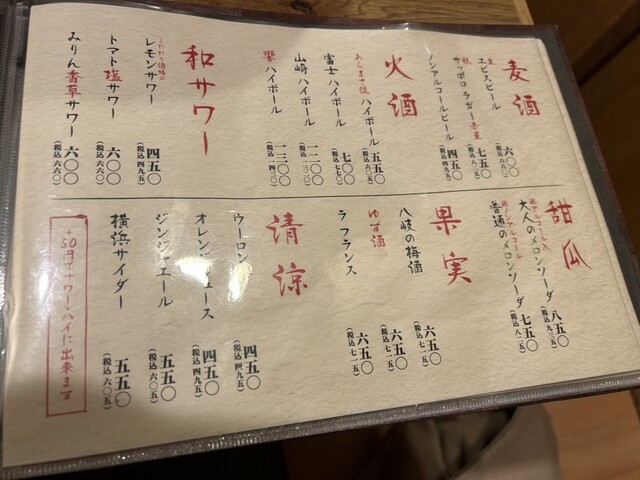 麦酒
生 ヱビスビール 六〇〇 (税込 六六〇)
瓶 サッポロラガー 赤星 七五〇 (税込 八二五)
ノンアルコールビール 四五〇 (税込 四九五)
火酒
あらまさ流 ハイボール 五五〇 (税込 六〇五)
富士ハイボール 七〇〇 (税込 七七〇)
山崎ハイボール 一二〇〇
響ハイボール 一三〇〇 (税込 一四三〇)
和サワー
こだわり酒場の
レモンサワー 四五〇 (税込 四九五)
トマト塩サワー 六〇〇 (税込 六六〇)
みりん香草サワー 六〇〇 (税込 六六〇)
甜瓜
大人のメロンソーダ 八五〇 (税込 九三五)
※ノンアルコール
普通のメロンソーダ 七五〇 (税込 八二五)
果実
八岐の梅酒 六五〇 (税込 七一五)
ゆず酒 六五〇 (税込 七一五)
ラフランス 六五〇 (税込 七一五)
清涼
ウーロン 四五〇 (税込 四九五)
オレンジジュース 四五〇 (税込 四九五)
ジンジャエール 五五〇 (税込 六〇五)
横浜サイダー 五五〇 (税込 六〇五)
+50円でサワー・ハイに出来ます